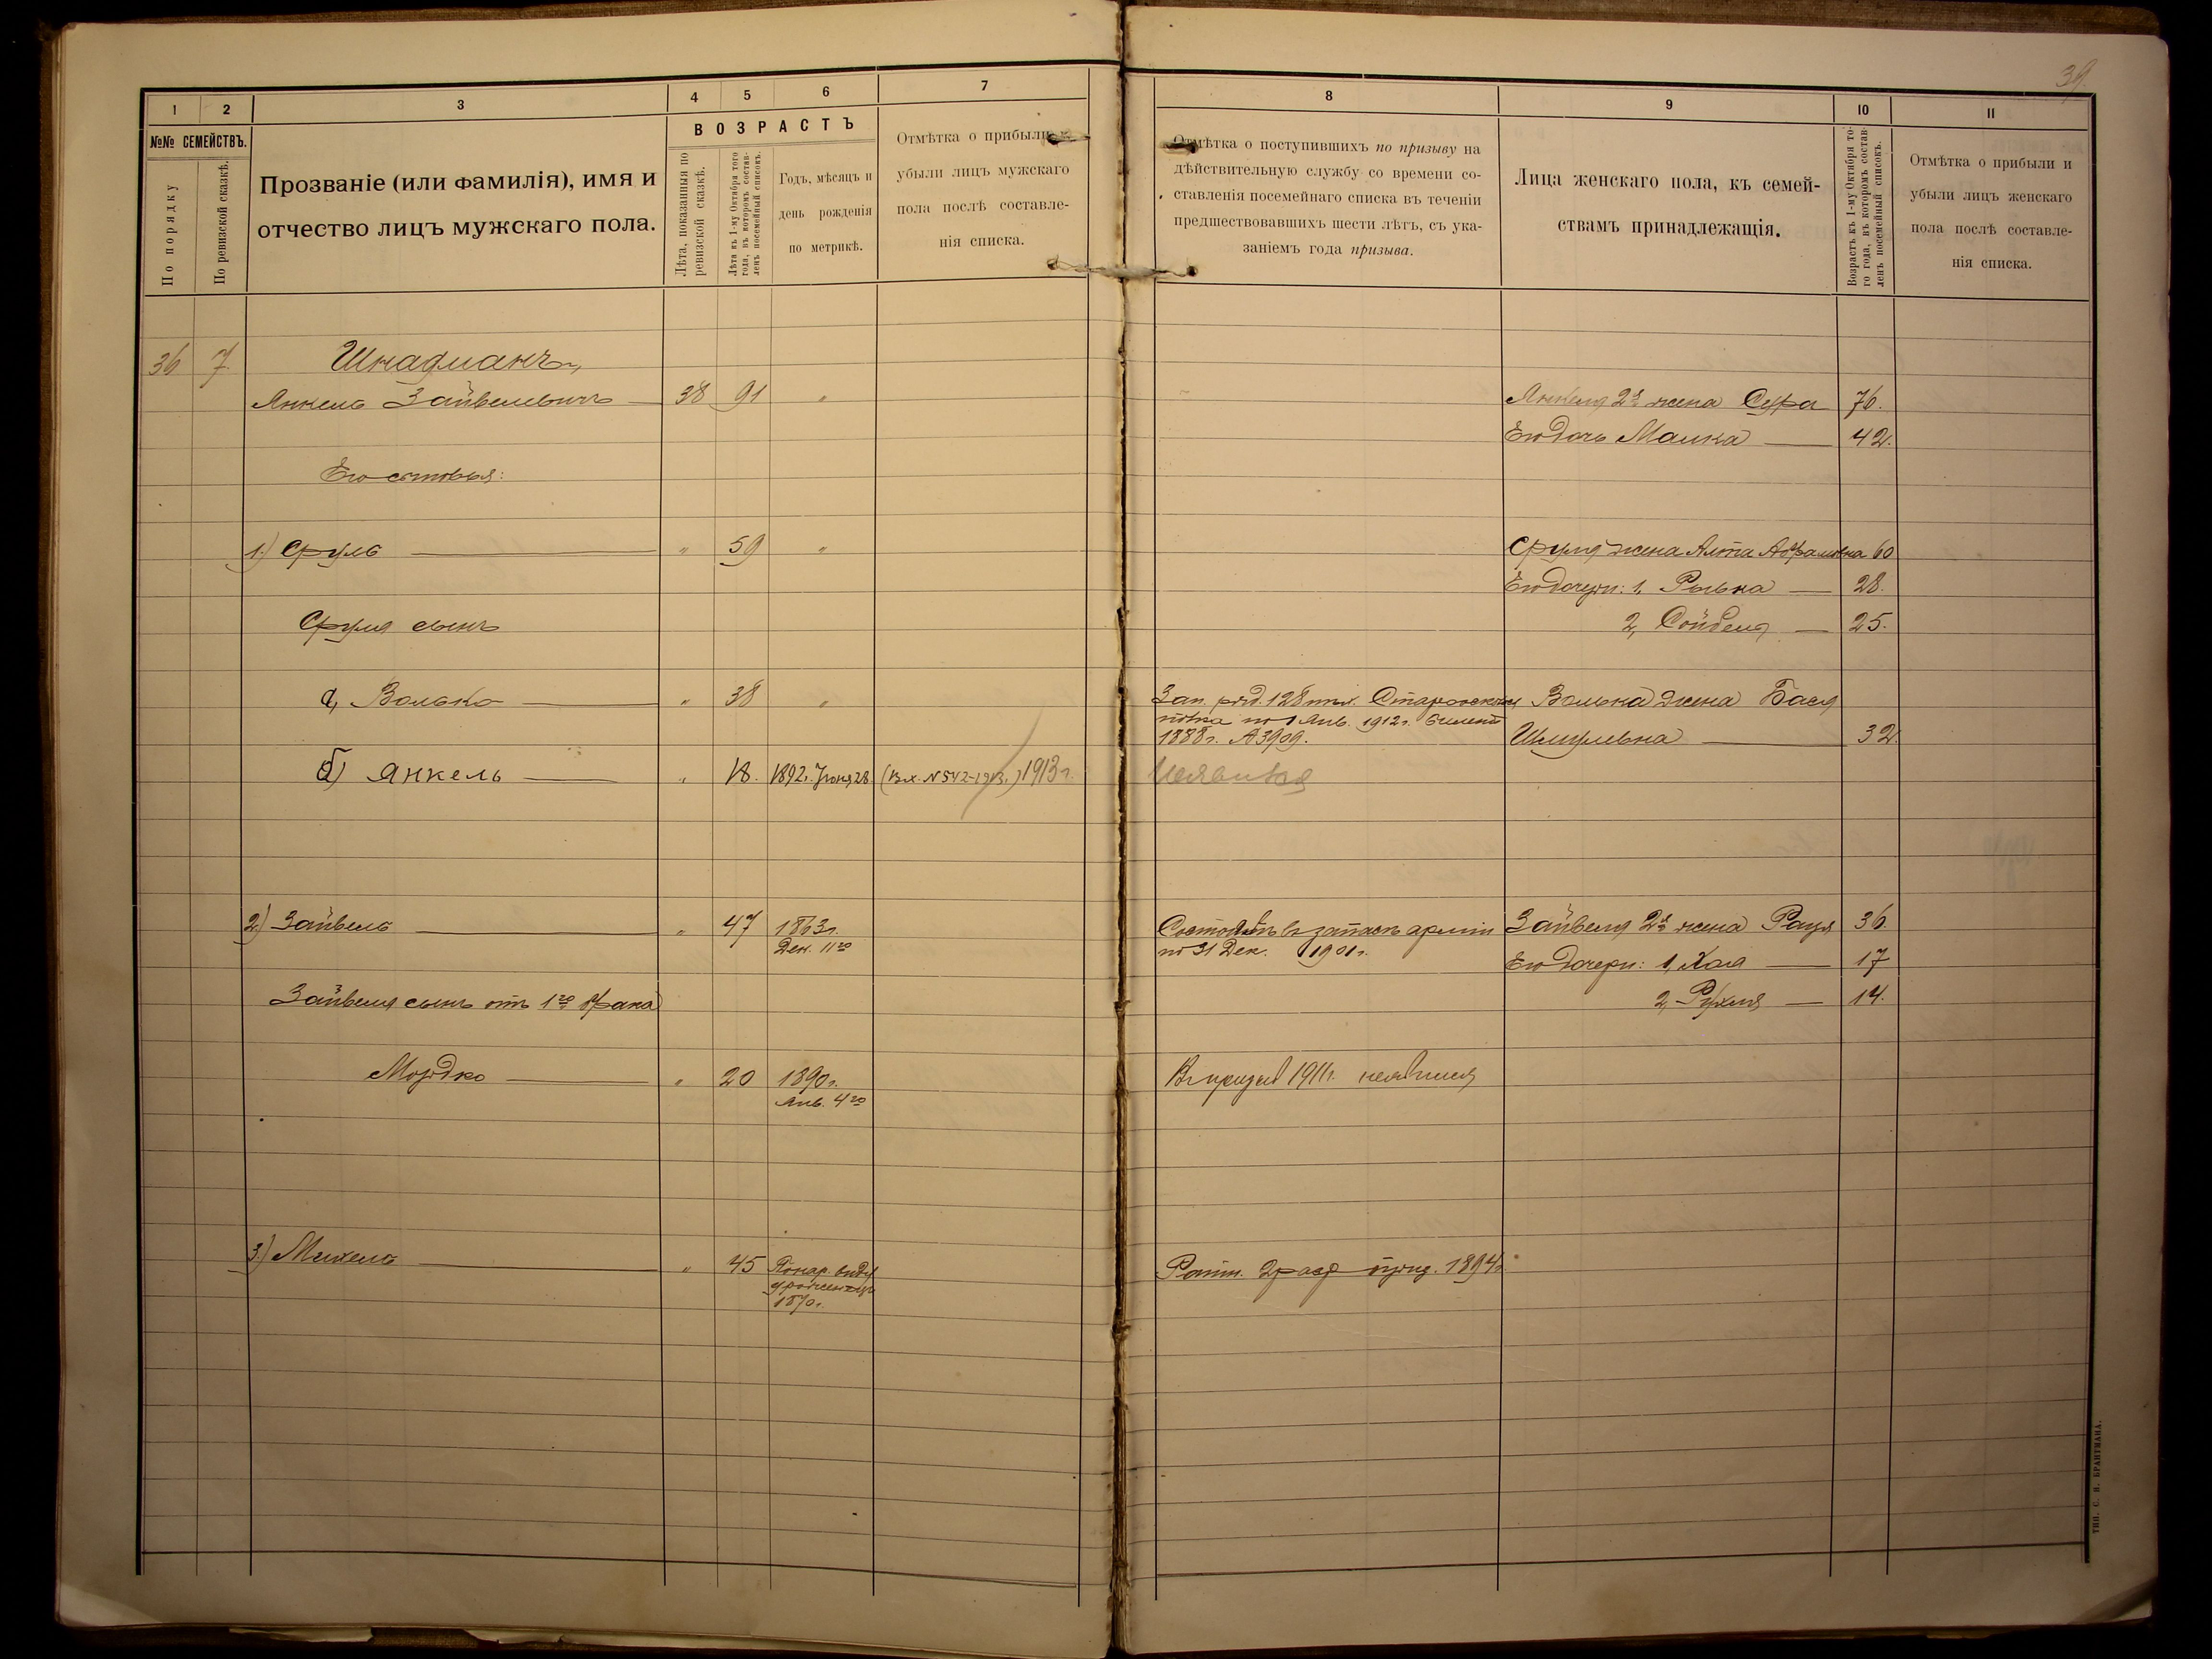 39.
1
2
3
4
5
6
7
№№ СЕМЕЙСТВЪ.
По порядку
По ревизской сказкѣ.
Прозваніе (или фамилія), имя и
отчество лицъ мужскаго пола.
ВОЗРАСТЪ
Лѣта, показанныя по
ревизской сказкѣ.
Лѣта къ 1-му Октября того
года, въ которомъ состав-
ленъ посемейный списокъ.
Годъ, мѣсяцъ и
день рожденія
по метрикѣ.
Отмѣтка о прибыли и
убыли лицъ мужскаго
пола послѣ составле-
нія списка.
8
9
10
11
Отмѣтка о поступившихъ по призыву на
дѣйствительную службу со времени со-
ставленія посемейнаго списка въ теченіи
предшествовавшихъ шести лѣтъ, съ ука-
заніемъ года призыва.
Лица женскаго пола, къ семей-
ствамъ принадлежащія.
Возрастъ къ 1-му Октября то-
го года, въ которомъ состав-
ленъ посемейный списокъ.
Отмѣтка о прибыли и
убыли лицъ женскаго
пола послѣ составле-
нія списка.
36 7. Шнадманъ,
Янкель Зайвелевичъ — 38 91 " Янкеля 2я жена Сура 76.
Его дочь Малка — 42.
Его сыновья:
1.) Сруль — " 59 " Сруля жена Алта Абрамовна 60
Его дочери: 1, Ривка — 28.
Сруля сынъ 2, Сойбеля — 25.
а, Волько — " 38 " Зап. ряд. 128 пѣх. Старооскольск Волька жена Бася
полка по 1 Янв. 1912 г. билетъ
1888 г. № 3909. Шмулевна — 32.
б) Янкель — " 18. 1892 г. Іюня 28. (Вх. № 542-1913 г.) 1913 г. Неявился
2.) Зайвель — " 47 1863 г. Состоялъ въ запасѣ арміи Зайвеля 2я жена Рация 36.
Дек. 11го по 31 Дек. 1901 г.
Его дочери: 1, Хая — 17
Зайвеля сынъ отъ 1го брака 2, Рухля — 14.
Мордко — " 20 1890 г. Въ призывѣ 1911 г. неявился
Янв. 4го
3.) Михель — " 45 Ратн. 2 разр призыв. 1894 г.
1870 г.
ТИП. С. И. БРАНТМАНА.